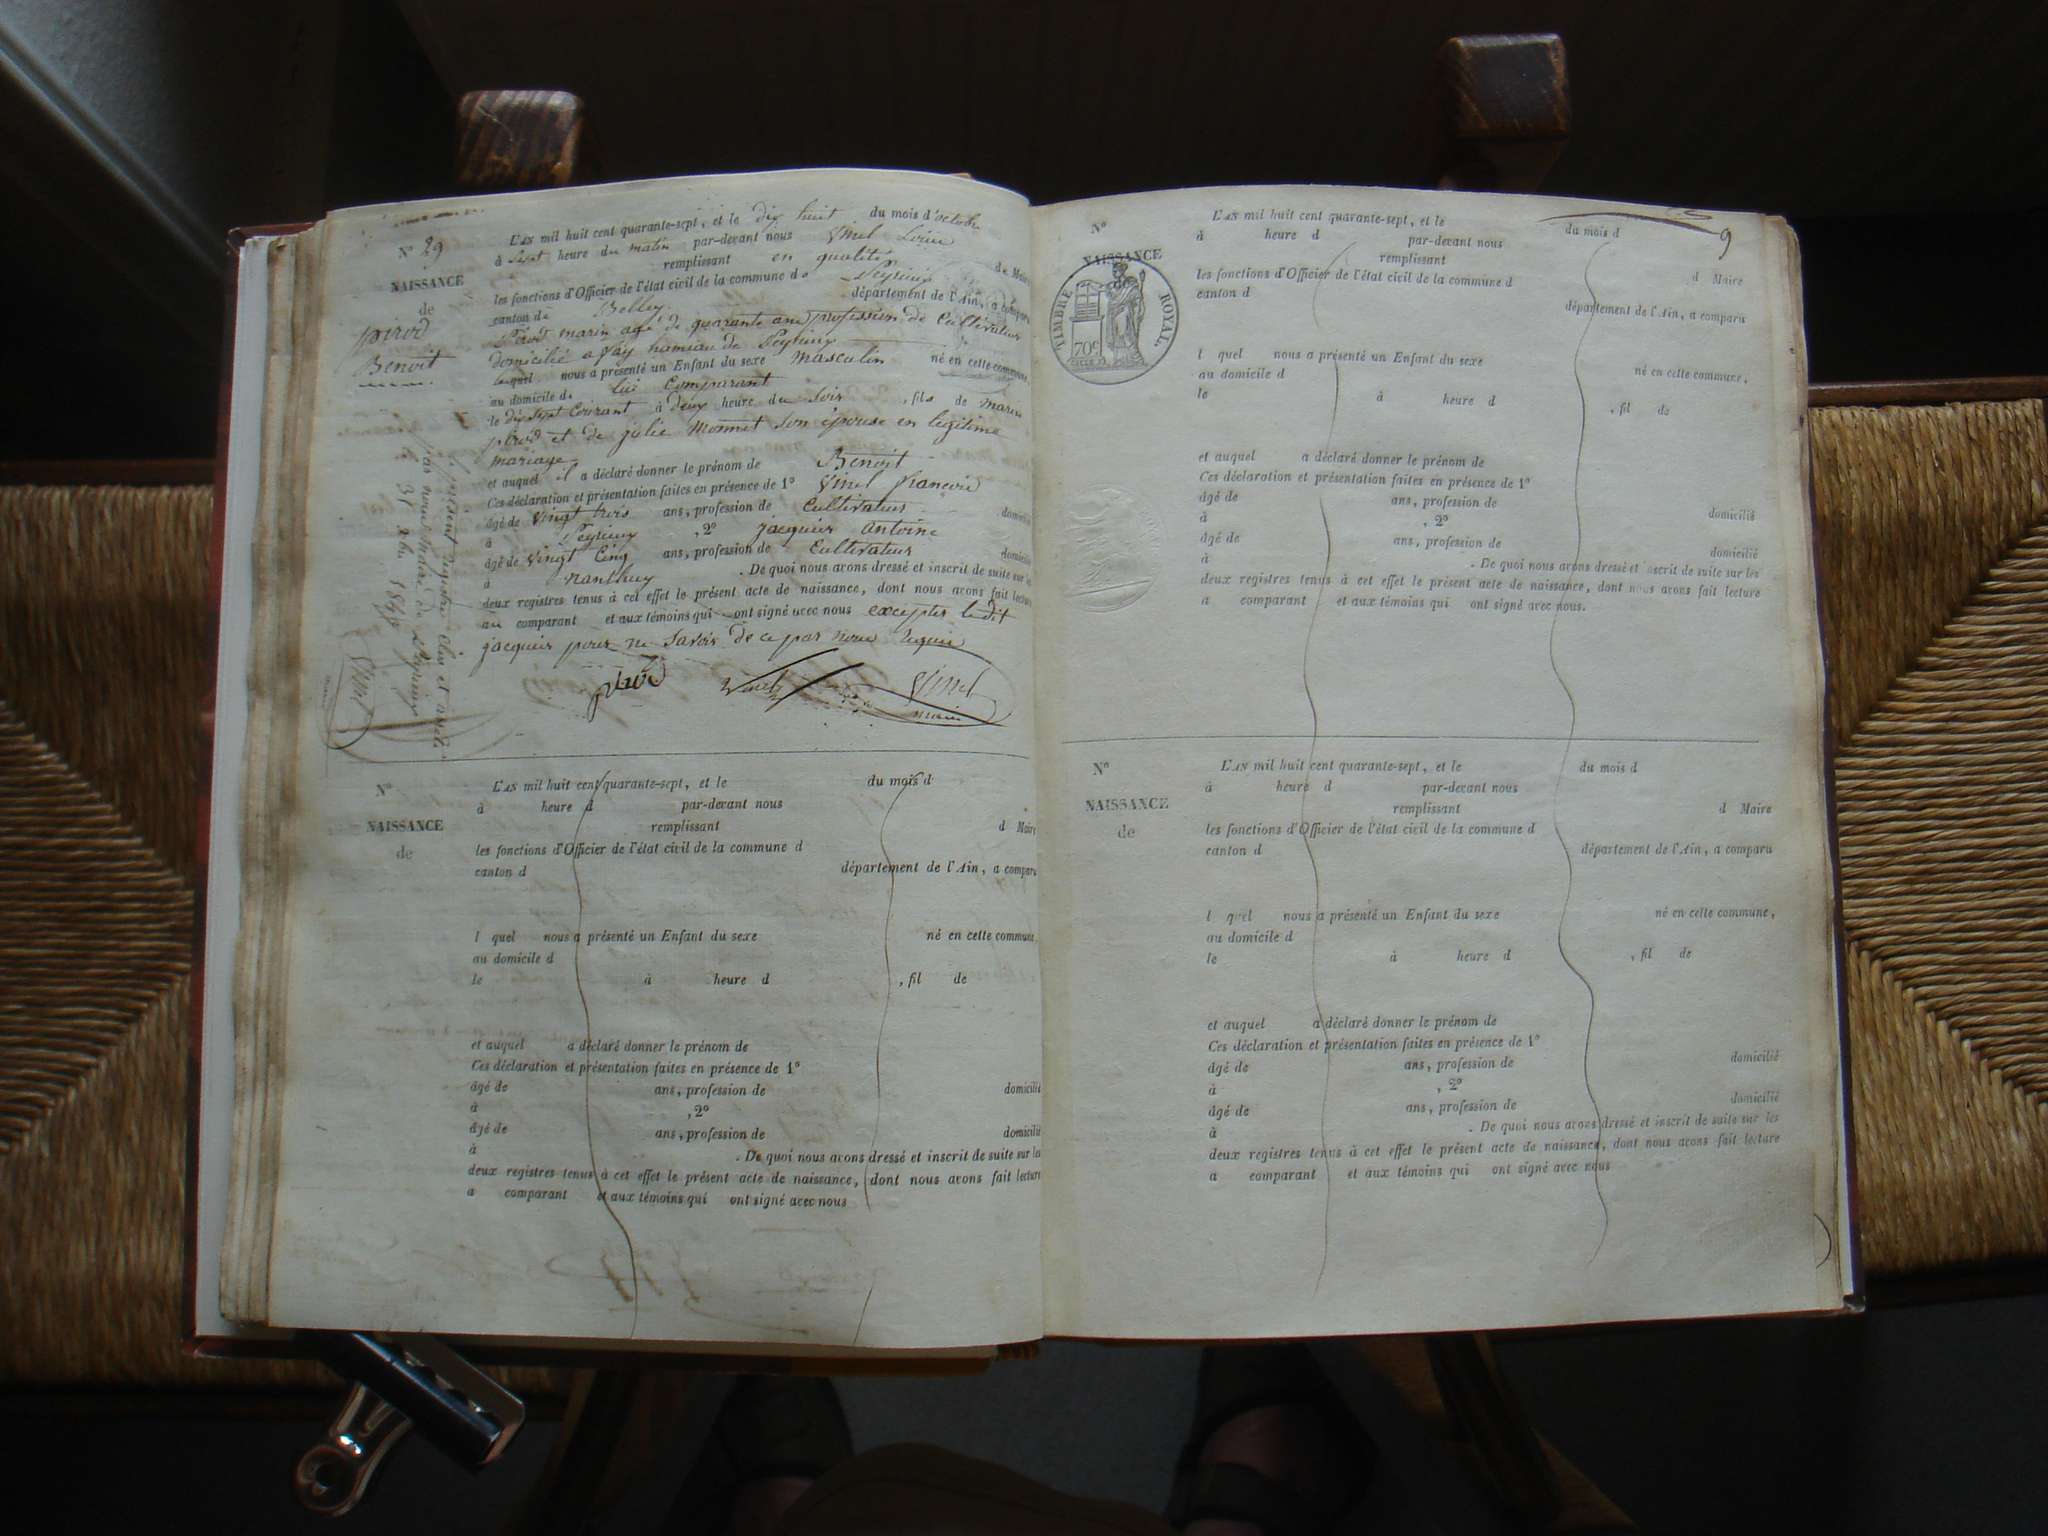 N° 29
NAISSANCE
de
pirod
Benoit
L'AN mil huit cent quarante-sept, et le dix huit du mois d'octobre
à Sept heure du matin par-devant nous Vinel
remplissant en qualité de Maire
les fonctions d'Officier de l'état civil de la commune de Peyrieux
canton de Belley département de l'Ain, a comparu
Pirod marin age de quarante ans profession de Cultivateur
domicilié a hameau de Peyrieux
lequel nous a présenté un Enfant du sexe masculin né en cette commune,
au domicile de lui Comparant
le dix Sept Courant à deux heure du Soir, fils de marin
pirod et de julie Monnet Son épouse en legitime
mariage
et auquel il a déclaré donner le prénom de Benoit
Ces déclaration et présentation faites en présence de 1° Vinel francois
âgé de vingt trois ans, profession de Cultivateur domicilié
à Peyrieux, 2° jacquier Antoine
âgé de vingt Cinq ans, profession de Cultivateur domicilié
à nanthuy. De quoi nous avons dressé et inscrit de suite sur les
deux registres tenus à cet effet le présent acte de naissance, dont nous avons fait lecture
au comparant et aux témoins qui ont signé avec nous excepter ledit
jacquier pour ne Savoir de ce par nous requis
pirod Vinel Vinel
maire
le présent registre Clos et arrêté
par nous maire de Peyrieux
le 31 Xbre 1847
Vinel
N°
NAISSANCE
de
L'AN mil huit cent quarante-sept, et le du mois d
à heure d par-devant nous
remplissant d Maire
les fonctions d'Officier de l'état civil de la commune d
canton d département de l'Ain, a comparu
l quel nous a présenté un Enfant du sexe né en cette commune,
au domicile d
le à heure d , fil de
et auquel a déclaré donner le prénom de
Ces déclaration et présentation faites en présence de 1°
âgé de ans, profession de domicilié
à , 2°
âgé de ans, profession de domicilié
à . De quoi nous avons dressé et inscrit de suite sur les
deux registres tenus à cet effet le présent acte de naissance, dont nous avons fait lecture
a comparant et aux témoins qui ont signé avec nous
9
N°
NAISSANCE
TIMBRE ROYAL.
70c
L'AN mil huit cent quarante-sept, et le du mois d
à heure d par-devant nous
remplissant d Maire
les fonctions d'Officier de l'état civil de la commune d
canton d département de l'Ain, a comparu
l quel nous a présenté un Enfant du sexe né en cette commune,
au domicile d
le à heure d , fil de
et auquel a déclaré donner le prénom de
Ces déclaration et présentation faites en présence de 1°
âgé de ans, profession de domicilié
à , 2°
âgé de ans, profession de domicilié
à . De quoi nous avons dressé et inscrit de suite sur les
deux registres tenus à cet effet le présent acte de naissance, dont nous avons fait lecture
a comparant et aux témoins qui ont signé avec nous.
N°
NAISSANCE
de
L'AN mil huit cent quarante-sept, et le du mois d
à heure d par-devant nous
remplissant d Maire
les fonctions d'Officier de l'état civil de la commune d
canton d département de l'Ain, a comparu
l quel nous a présenté un Enfant du sexe né en cette commune,
au domicile d
le à heure d , fil de
et auquel a déclaré donner le prénom de
Ces déclaration et présentation faites en présence de 1°
âgé de ans, profession de domicilié
à , 2°
âgé de ans, profession de domicilié
à . De quoi nous avons dressé et inscrit de suite sur les
deux registres tenus à cet effet le présent acte de naissance, dont nous avons fait lecture
a comparant et aux témoins qui ont signé avec nous